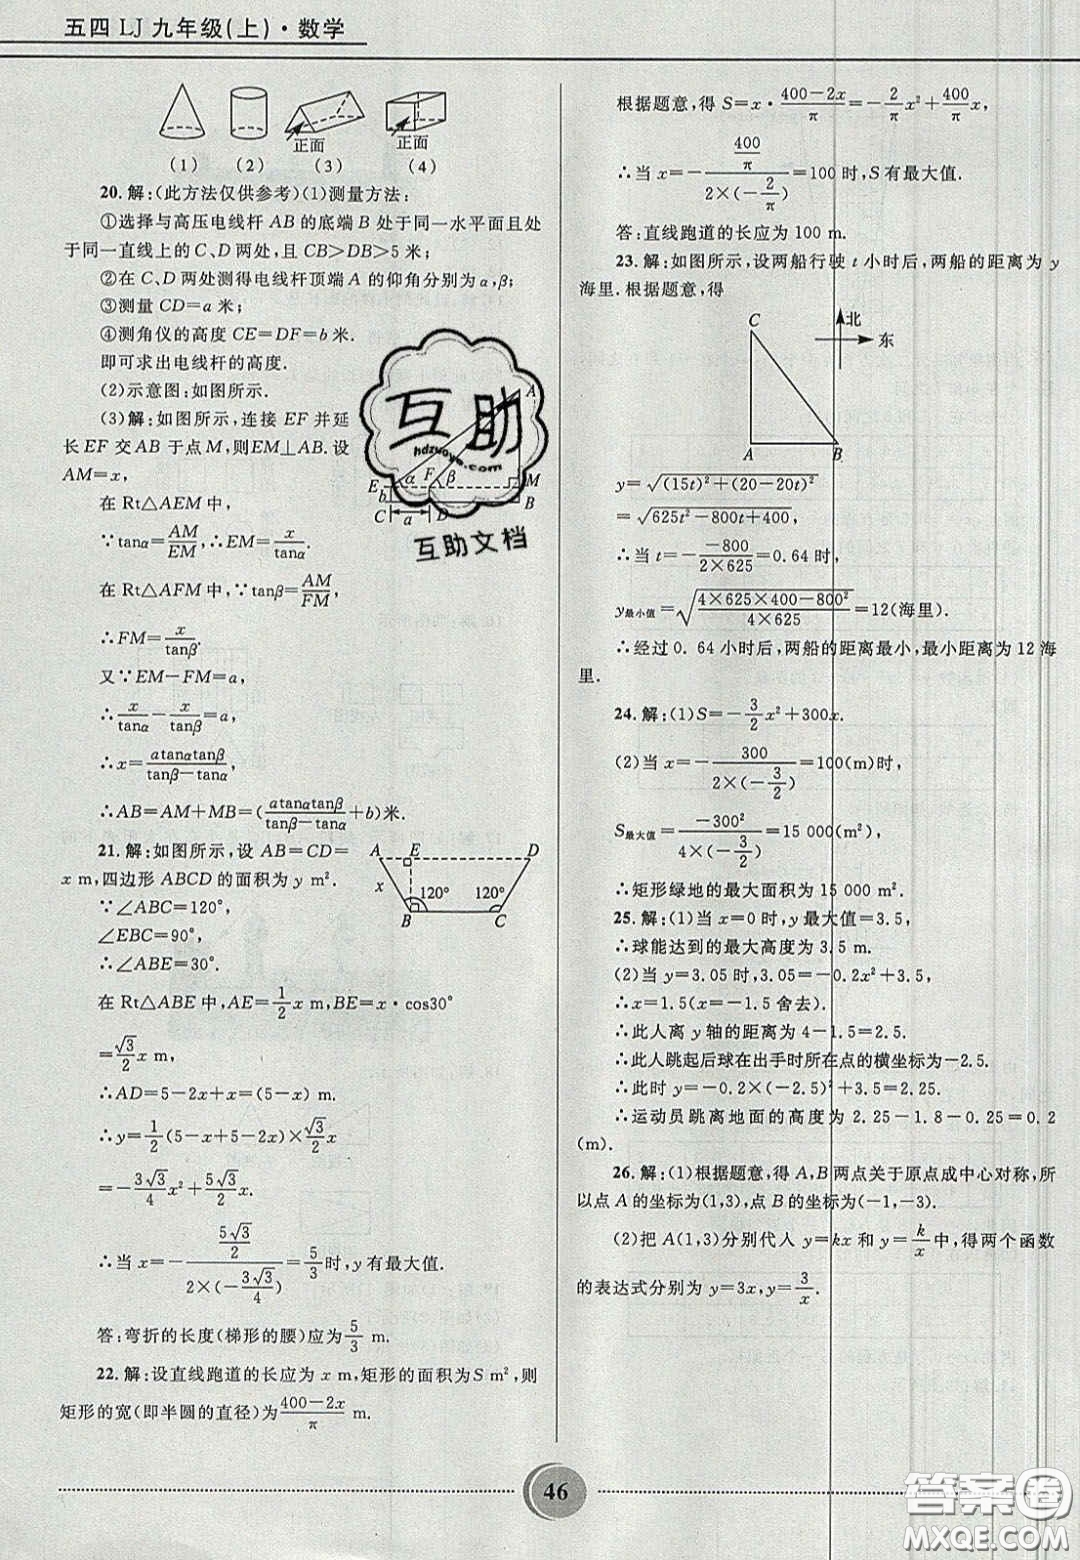 五四 LJ 九年级(上)·数学
正面 正面
(1) (2) (3) (4)
20. 解:(此方法仅供参考)(1)测量方法:
①选择与高压电线杆 AB 的底端 B 处于同一水平面且处
于同一直线上的 C、D 两处,且 CB>DB>5 米;
②在 C、D 两处测得电线杆顶端 A 的仰角分别为α,β;
③测量 CD=a 米;
④测角仪的高度 CE=DF=b 米.
即可求出电线杆的高度.
(2)示意图:如图所示.
(3)解:如图所示,连接 EF 并延
长 EF 交 AB 于点 M,则EM⊥AB. 设
AM=x,
在 Rt△AEM 中,
∵tanα=AM/EM,∴EM=x/tanα.
在 Rt△AFM 中,∵tanβ=AM/FM,
∴FM=x/tanβ.
又∵EM-FM=a,
∴x/tanα-x/tanβ=a,
∴x=atanαtanβ/(tanβ-tanα),
∴AB=AM+MB=(atanαtanβ/(tanβ-tanα)+b)米.
A
E α F β M
b
C a D B
互助
hdzuoye.com
互助文档
21. 解:如图所示,设 AB=CD=
x m,四边形 ABCD 的面积为 y m².
∵∠ABC=120°,
∠EBC=90°,
∴∠ABE=30°.
A E D
x 120° 120°
B C
在 Rt△ABE 中,AE=1/2 x m,BE=x·cos30°
=√3/2 x m,
∴AD=5-2x+x=(5-x) m.
∴y=1/2(5-x+5-2x)×√3/2 x
=-3√3/4 x²+5√3/2 x.
∴当 x=-(5√3/2)/(2×(-3√3/4))=5/3时,y 有最大值.
答:弯折的长度(梯形的腰)应为5/3 m.
22. 解:设直线跑道的长应为 x m,矩形的面积为 S m²,则
矩形的宽(即半圆的直径)为(400-2x)/π m.
根据题意,得 S=x·(400-2x)/π=-2/π x²+400/π x,
∴当 x=-(400/π)/(2×(-2/π))=100 时,S 有最大值.
答:直线跑道的长应为 100 m.
23. 解:如图所示,设两船行驶 t 小时后,两船的距离为 y
海里. 根据题意,得
C 北
东
A B
y=√((15t)²+(20-20t)²)
=√(625t²-800t+400),
∴当 t=-(-800)/(2×625)=0.64 时,
y最小值=√((4×625×400-800²)/(4×625))=12(海里).
∴经过 0.64 小时后,两船的距离最小,最小距离为 12 海
里.
24. 解:(1)S=-3/2 x²+300x.
(2)当 x=-300/(2×(-3/2))=100(m)时,
S最大值=-300²/(4×(-3/2))=15 000(m²),
∴矩形绿地的最大面积为 15 000 m².
25. 解:(1)当 x=0 时,y 最大值=3.5,
∴球能达到的最大高度为 3.5 m.
(2)当 y=3.05 时,3.05=-0.2x²+3.5,
∴x=1.5(x=-1.5 舍去).
∴此人离 y 轴的距离为 4-1.5=2.5.
∴此人跳起后球在出手时所在点的横坐标为-2.5.
∴此时 y=-0.2×(-2.5)²+3.5=2.25.
∴运动员跳离地面的高度为 2.25-1.8-0.25=0.2
(m).
26. 解:(1)根据题意,得 A,B 两点关于原点成中心对称,所
以点 A 的坐标为(1,3),点 B 的坐标为(-1,-3).
(2)把 A(1,3)分别代入 y=kx 和 y=k/x 中,得两个函数
的表达式分别为 y=3x,y=3/x.
46
答案圈
MXQE.COM